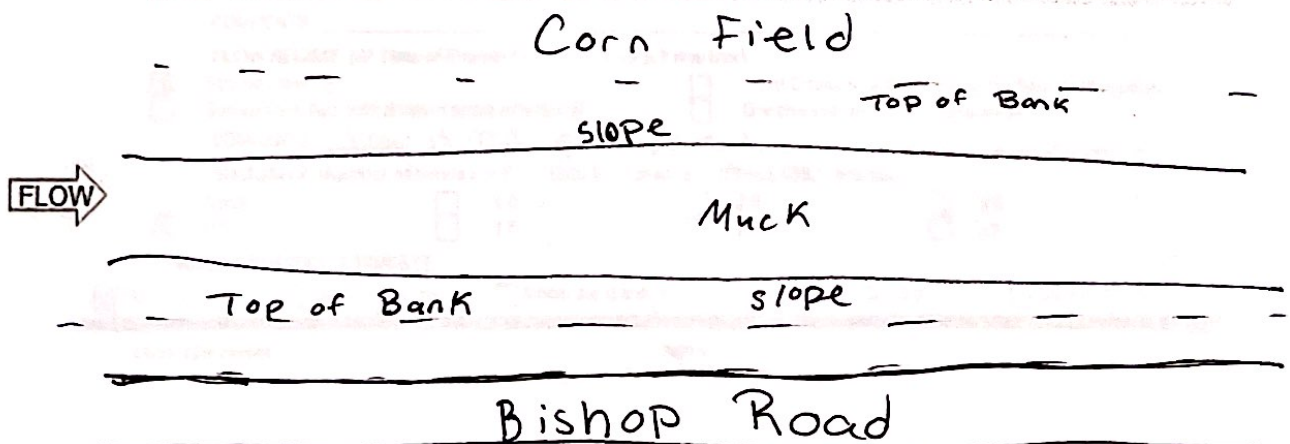 Corn Field
Top of Bank
slope
FLOW
Muck
Top of Bank slope
Bishop Road